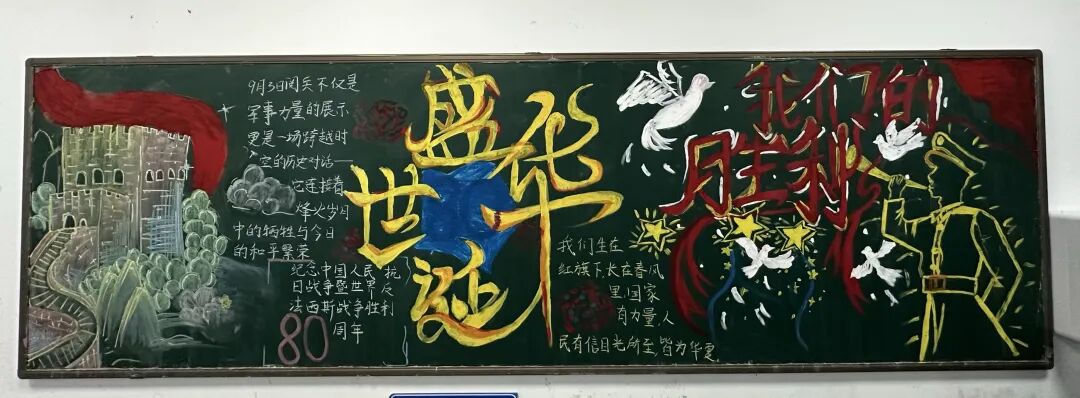 9月3日阅兵不仅是
军事力量的展示
更是一场跨越时
空的历史对话——
它连接着
烽火岁月
中的牺牲与今日
的和平繁荣
纪念中国人民抗
日战争暨世界反
法西斯战争胜利
80周年
盛
世华
诞
我们的
胜利
我们生在
红旗下长在春风
里国家
有力量人
民有信目光所至皆为华夏